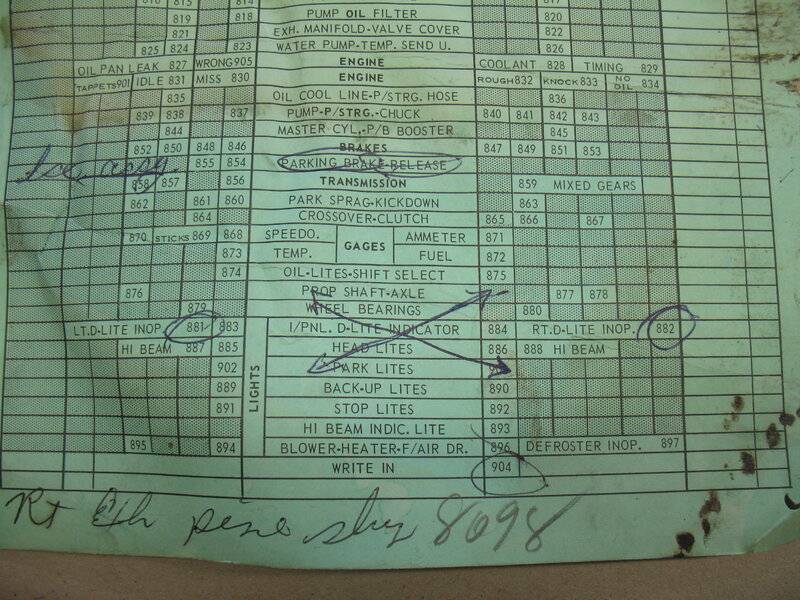 819 818 PUMP OIL FILTER 820
821 EXH. MANIFOLD-VALVE COVER 822
825 824 823 WATER PUMP-TEMP. SEND U. 826
OIL PAN LEAK 827 WRONG 905 ENGINE COOLANT 828 TIMING 829
TAPPETS 901 IDLE 831 MISS 830 ENGINE ROUGH 832 KNOCK 833 NO OIL 834
835 OIL COOL LINE-P/STRG. HOSE 836
839 838 837 PUMP-P/STRG.-CHUCK 840 841 842 843
844 MASTER CYL.-P/B BOOSTER 845
852 850 848 846 BRAKES 847 849 851 853
855 854 PARKING BRAKE-RELEASE
858 857 856 TRANSMISSION 859 MIXED GEARS
862 861 860 PARK SPRAG-KICKDOWN 863
864 CROSSOVER-CLUTCH 865 866 867
870 STICKS 869 868 SPEEDO. GAGES AMMETER 871
873 TEMP. FUEL 872
874 OIL-LITES-SHIFT SELECT 875
876 PROP SHAFT-AXLE 877 878
879 WHEEL BEARINGS 880
LT. D-LITE INOP. 881 883 I/PNL. D-LITE INDICATOR 884 RT. D-LITE INOP. 882
HI BEAM 887 885 HEAD LITES 886 888 HI BEAM
902 PARK LITES
889 BACK-UP LITES 890
LIGHTS
891 STOP LITES 892
HI BEAM INDIC. LITE 893
895 894 BLOWER-HEATER-F/AIR DR. 896 DEFROSTER INOP. 897
WRITE IN 904
Rt 8098